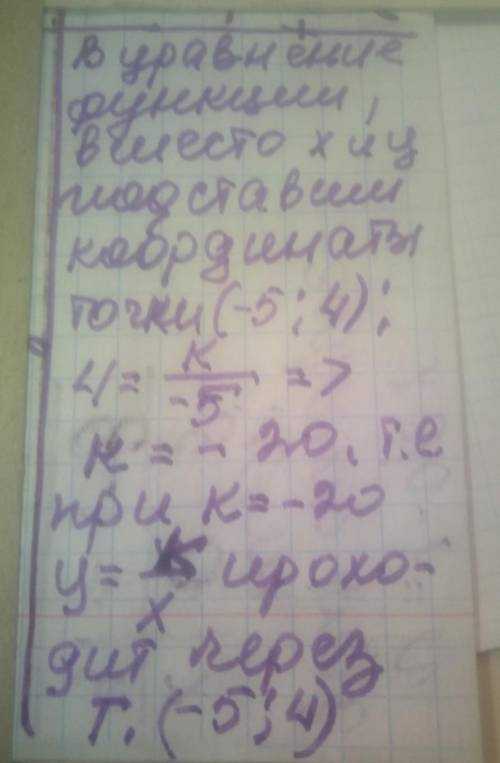 В уравнение
функции,
вместо х и у
подставим
координаты
точки (-5; 4);
4 = к/-5 =>
к = - 20, т.е
при к = -20
у = к/х прохо-
дит через
т. (-5; 4)